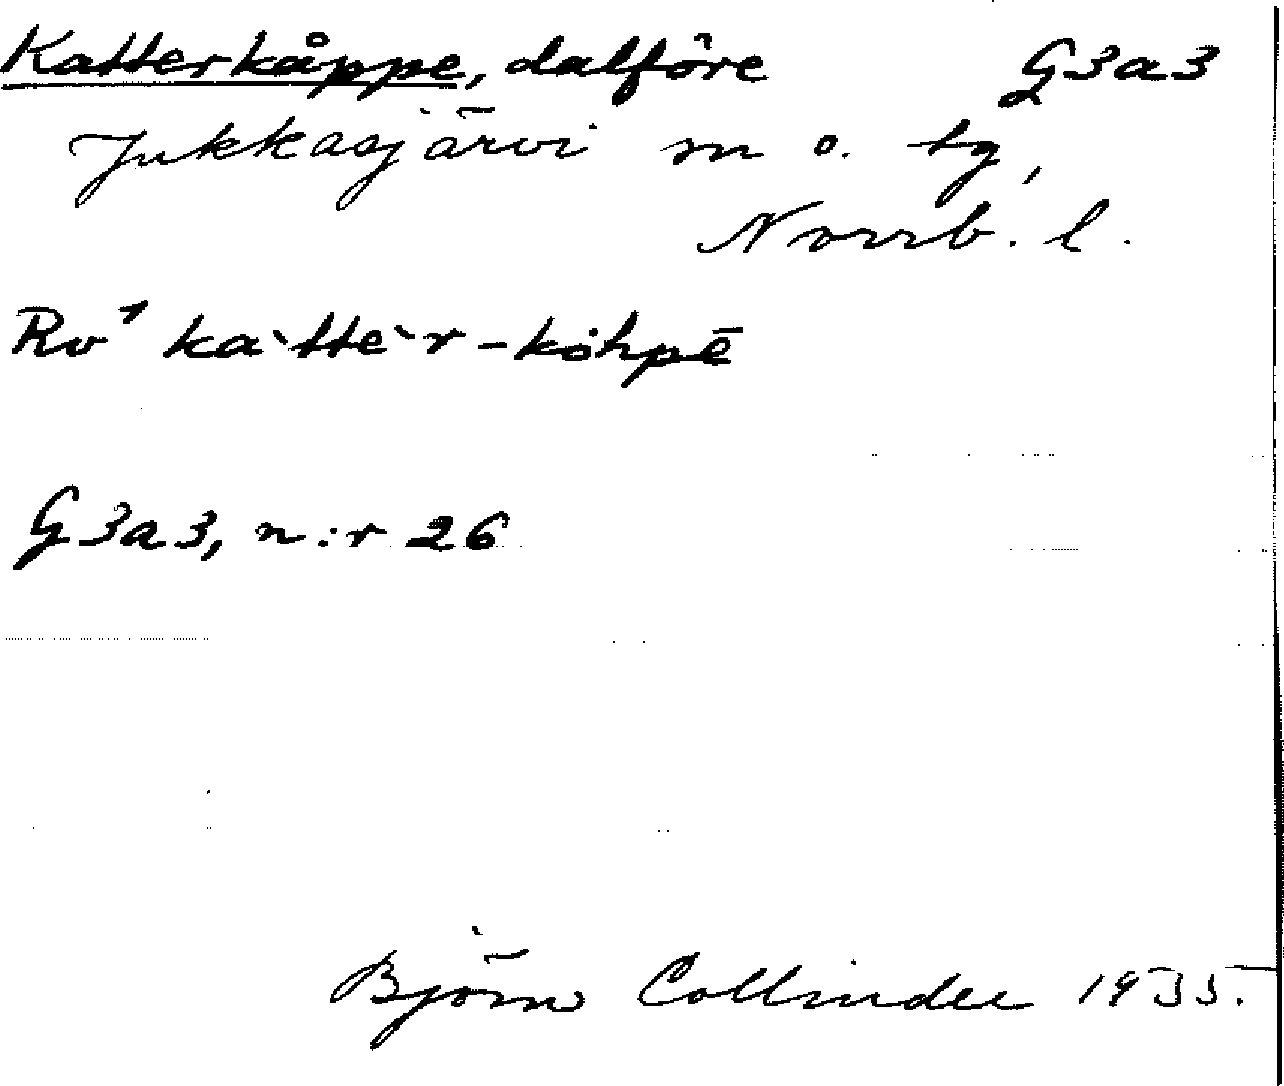 Katterkåppe, dalföre G3a3
Jukkasjärvi sn o. tg,
Norrb. l.
Rv¹ ka`tte`r-kȯhpē
G3a3, n:r 26
Björn Collinder 1935.